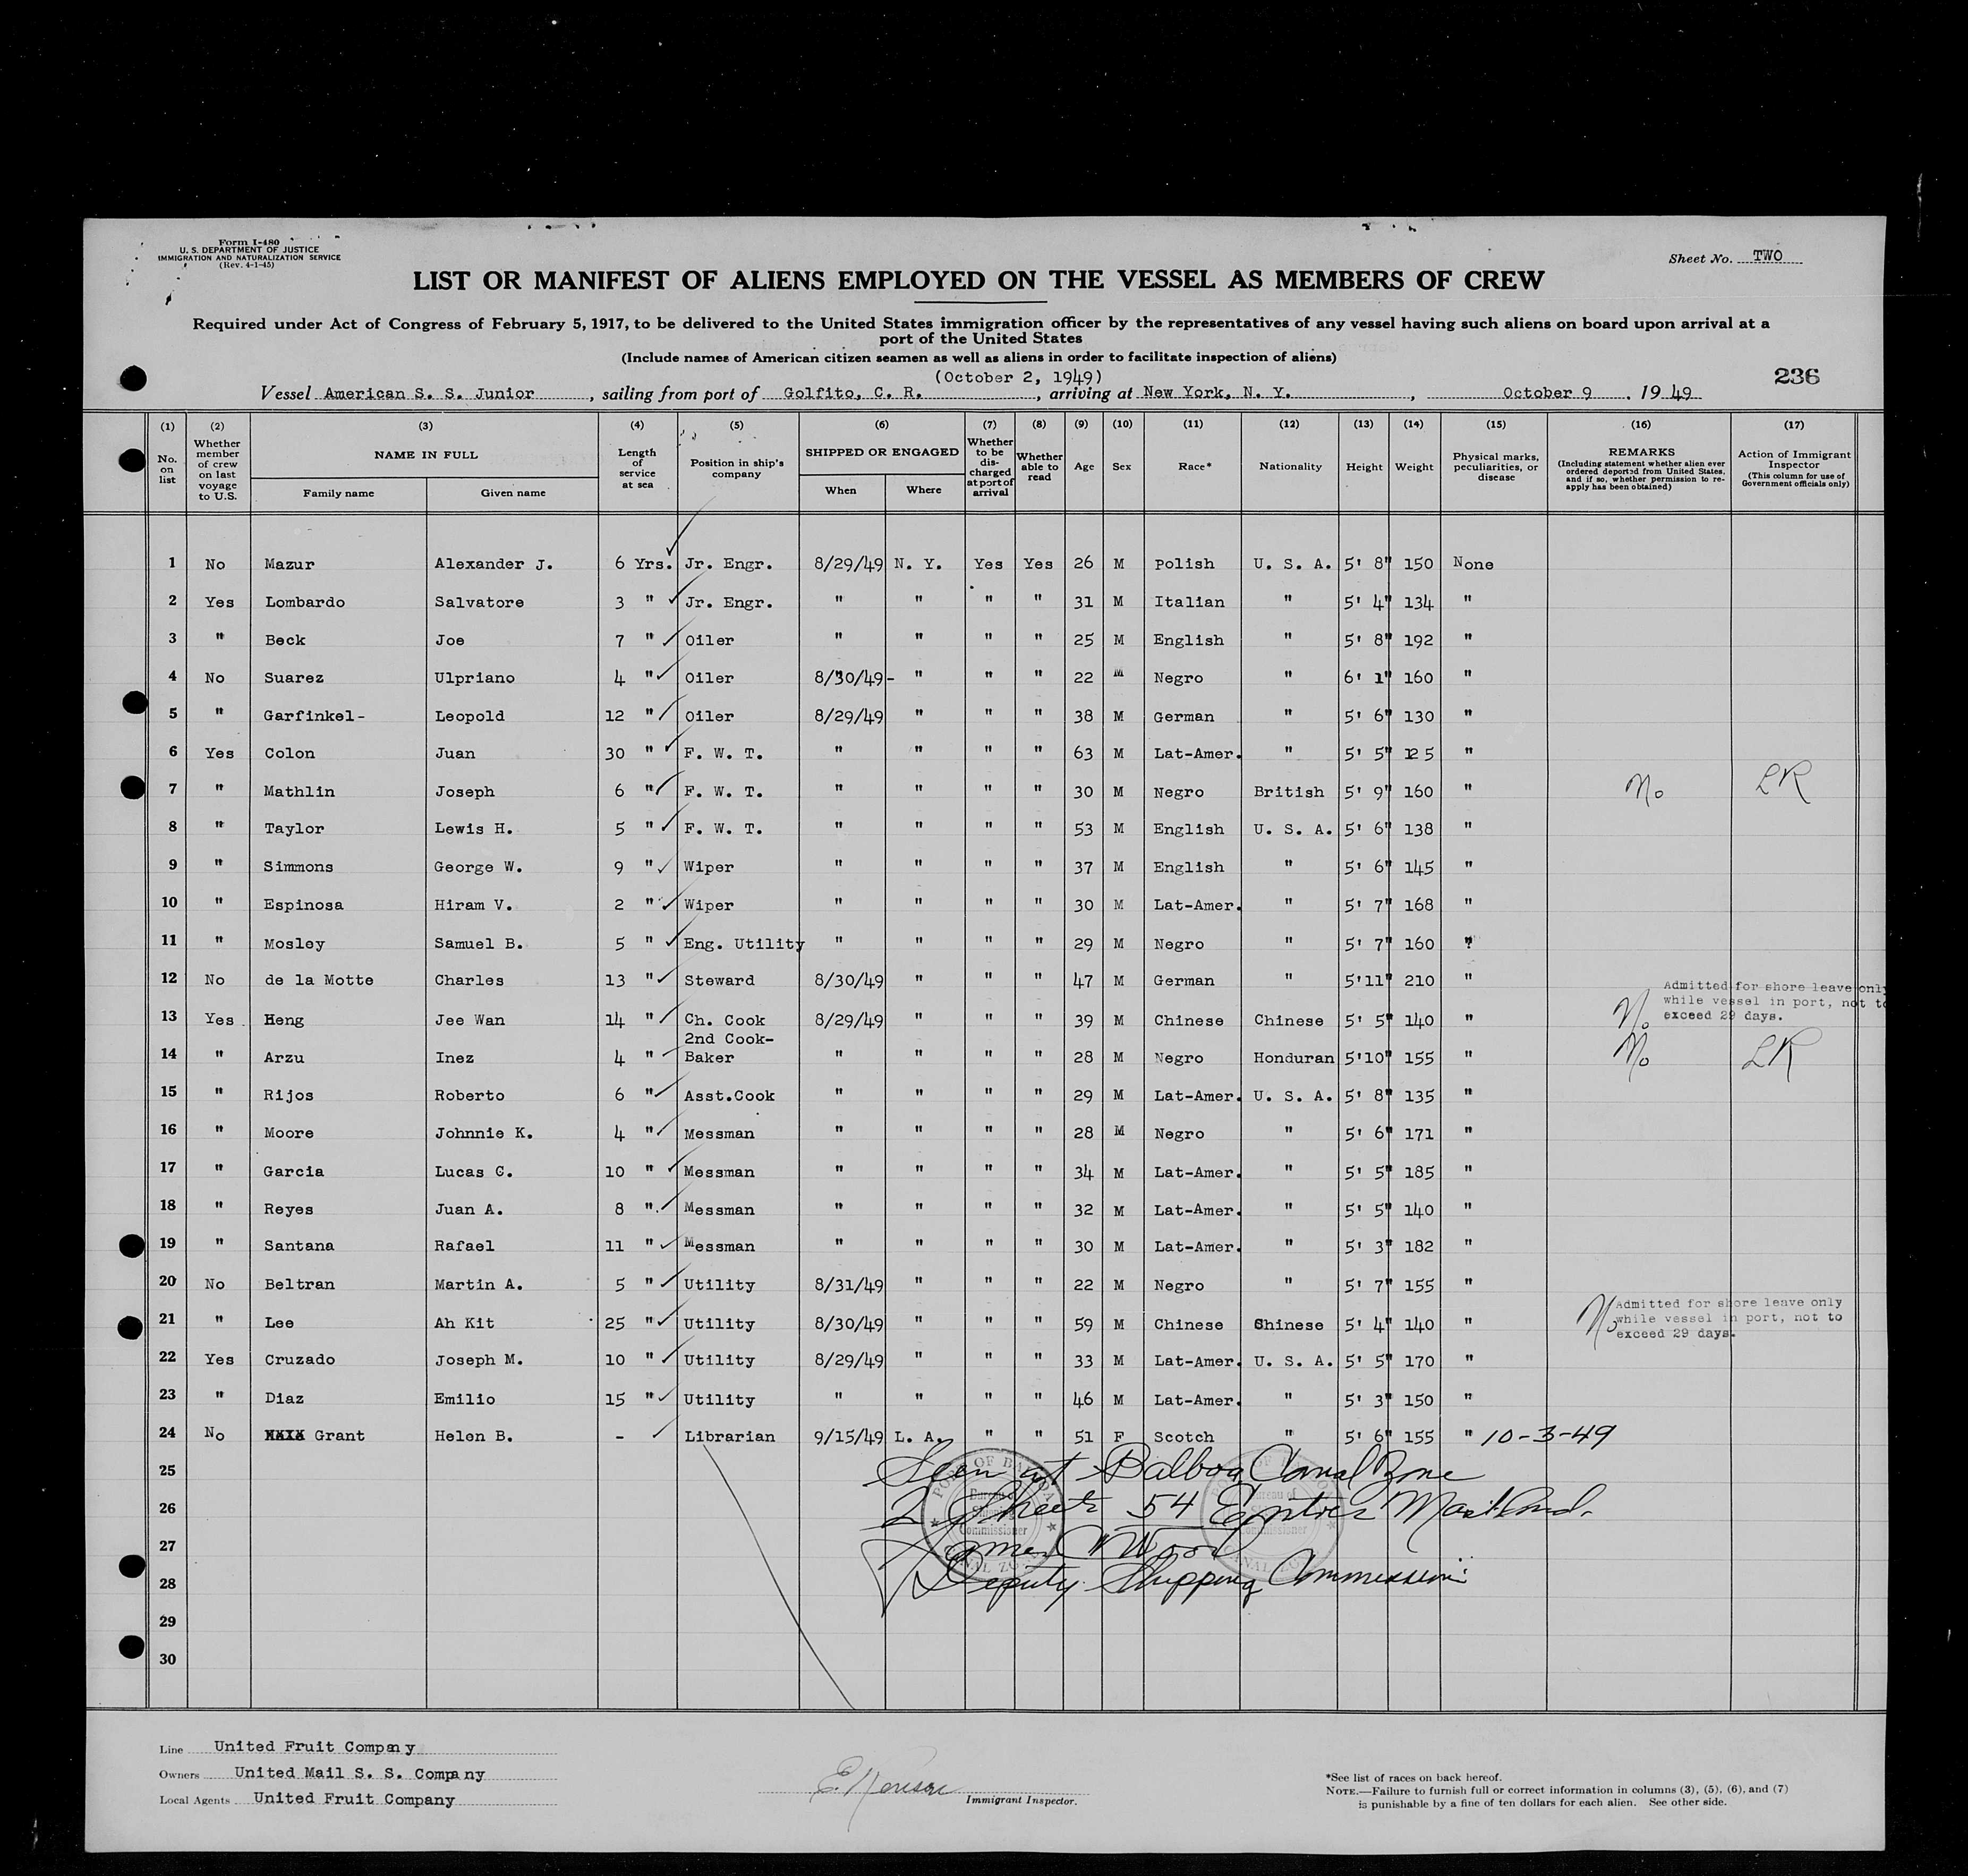 Form I-480
U. S. DEPARTMENT OF JUSTICE
IMMIGRATION AND NATURALIZATION SERVICE
(Rev. 4-1-45)
Sheet No. TWO
LIST OR MANIFEST OF ALIENS EMPLOYED ON THE VESSEL AS MEMBERS OF CREW
Required under Act of Congress of February 5, 1917, to be delivered to the United States immigration officer by the representatives of any vessel having such aliens on board upon arrival at a
port of the United States
(Include names of American citizen seamen as well as aliens in order to facilitate inspection of aliens)
(October 2, 1949)
236
Vessel American S. S. Junior, sailing from port of Golfito, C. R., arriving at New York, N. Y., October 9, 1949
(1) (2) (3) (4) (5) (6) (7) (8) (9) (10) (11) (12) (13) (14) (15) (16) (17)
No. on list
Whether member of crew on last voyage to U.S.
NAME IN FULL
Family name
Given name
Length of service at sea
Position in ship's company
SHIPPED OR ENGAGED
When
Where
Whether to be discharged at port of arrival
Whether able to read
Age
Sex
Race*
Nationality
Height
Weight
Physical marks, peculiarities, or disease
REMARKS
(Including statement whether alien ever ordered deported from United States, and if so, whether permission to reapply has been obtained)
Action of Immigrant Inspector
(This column for use of Government officials only)
1 No Mazur Alexander J. 6 Yrs. Jr. Engr. 8/29/49 N. Y. Yes Yes 26 M Polish U. S. A. 5' 8" 150 None
2 Yes Lombardo Salvatore 3 " Jr. Engr. " " " " 31 M Italian " 5' 4" 134 "
3 " Beck Joe 7 " Oiler " " " " 25 M English " 5' 8" 192 "
4 No Suarez Ulpriano 4 " Oiler 8/30/49- " " " 22 M Negro " 6' 1" 160 "
5 " Garfinkel- Leopold 12 " Oiler 8/29/49 " " " 38 M German " 5' 6" 130 "
6 Yes Colon Juan 30 " F. W. T. " " " " 63 M Lat-Amer. " 5' 5" 125 "
7 " Mathlin Joseph 6 " F. W. T. " " " " 30 M Negro British 5' 9" 160 " No LR
8 " Taylor Lewis H. 5 " F. W. T. " " " " 53 M English U. S. A. 5' 6" 138 "
9 " Simmons George W. 9 " Wiper " " " " 37 M English " 5' 6" 145 "
10 " Espinosa Hiram V. 2 " Wiper " " " " 30 M Lat-Amer. " 5' 7" 168 "
11 " Mosley Samuel B. 5 " Eng. Utility " " " " 29 M Negro " 5' 7" 160 "
12 No de la Motte Charles 13 " Steward 8/30/49 " " " 47 M German " 5'11" 210 "
Admitted for shore leave only
while vessel in port, not to
exceed 29 days.
13 Yes Heng Jee Wan 14 " Ch. Cook 8/29/49 " " " 39 M Chinese Chinese 5' 5" 140 " No
14 " Arzu Inez 4 " 2nd Cook-Baker " " " " 28 M Negro Honduran 5'10" 155 " No LR
15 " Rijos Roberto 6 " Asst.Cook " " " " 29 M Lat-Amer. U. S. A. 5' 8" 135 "
16 " Moore Johnnie K. 4 " Messman " " " " 28 M Negro " 5' 6" 171 "
17 " Garcia Lucas C. 10 " Messman " " " " 34 M Lat-Amer. " 5' 5" 185 "
18 " Reyes Juan A. 8 " Messman " " " " 32 M Lat-Amer. " 5' 5" 140 "
19 " Santana Rafael 11 " Messman " " " " 30 M Lat-Amer. " 5' 3" 182 "
20 No Beltran Martin A. 5 " Utility 8/31/49 " " " 22 M Negro " 5' 7" 155 "
21 " Lee Ah Kit 25 " Utility 8/30/49 " " " 59 M Chinese Chinese 5' 4" 140 " No
Admitted for shore leave only
while vessel in port, not to
exceed 29 days.
22 Yes Cruzado Joseph M. 10 " Utility 8/29/49 " " " 33 M Lat-Amer. U. S. A. 5' 5" 170 "
23 " Diaz Emilio 15 " Utility " " " " 46 M Lat-Amer. " 5' 3" 150 "
24 No Grant Helen B. - Librarian 9/15/49 L. A. " " 51 F Scotch " 5' 6" 155 " 10-3-49
25
26
27
28
29
30
Seen at Balboa Canal Zone
2 Sheets 54 Entries
James Wood
Deputy Shipping Commissioner
PORT OF BALBOA
Bureau of
Shipping
Commissioner
CANAL ZONE
Line United Fruit Company
Owners United Mail S. S. Company
Local Agents United Fruit Company
Immigrant Inspector.
*See list of races on back hereof.
NOTE.—Failure to furnish full or correct information in columns (3), (5), (6), and (7)
is punishable by a fine of ten dollars for each alien. See other side.